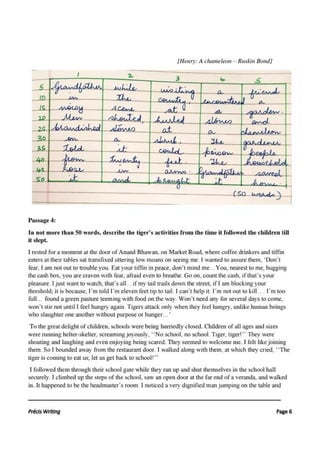 [Henry: A chameleon – Ruskin Bond]
1 2 3 4 5
5 Grandfather while visiting a friend
10 in the country, encountered a
15 noisy scene at a garden.
20 Men shouted, hurled stones and
25 brandished stones at a chameleon
30 on a shrub. The gardener
35 Told it could poison people
40 from twenty feet. The household
45 rose in arms. Grandfather saved
50 it and brought it home.
(50 words)
Passage 4:
In not more than 50 words, describe the tiger's activities from the time it followed the children till
it slept.
I rested for a moment at the door of Anand Bhawan, on Market Road, where coffee drinkers and tiffin
eaters at their tables sat transfixed uttering low moans on seeing me. I wanted to assure them, 'Don't
fear, I am not out to trouble you. Eat your tiffin in peace, don't mind me…You, nearest to me, hugging
the cash box, you are craven with fear, afraid even to breathe. Go on, count the cash, if that's your
pleasure. I just want to watch, that's all…if my tail trails down the street, if I am blocking your
threshold; it is because, I'm told I'm eleven feet tip to tail. I can't help it. I'm not out to kill… I'm too
full… found a green pasture teeming with food on the way. Won't need any for several days to come,
won't stir not until I feel hungry again. Tigers attack only when they feel hungry, unlike human beings
who slaughter one another without purpose or hunger…'
To the great delight of children, schools were being hurriedly closed. Children of all ages and sizes
were running helter-skelter, screaming joyously, ''No school, no school. Tiger, tiger!'' They were
shouting and laughing and even enjoying being scared. They seemed to welcome me. I felt like joining
them. So I bounded away from the restaurant door. I walked along with them, at which they cried, ''The
tiger is coming to eat us; let us get back to school!''
I followed them through their school gate while they ran up and shut themselves in the school hall
securely. I climbed up the steps of the school, saw an open door at the far end of a veranda, and walked
in. It happened to be the headmaster's room. I noticed a very dignified man jumping on the table and
Précis Writing Page 6